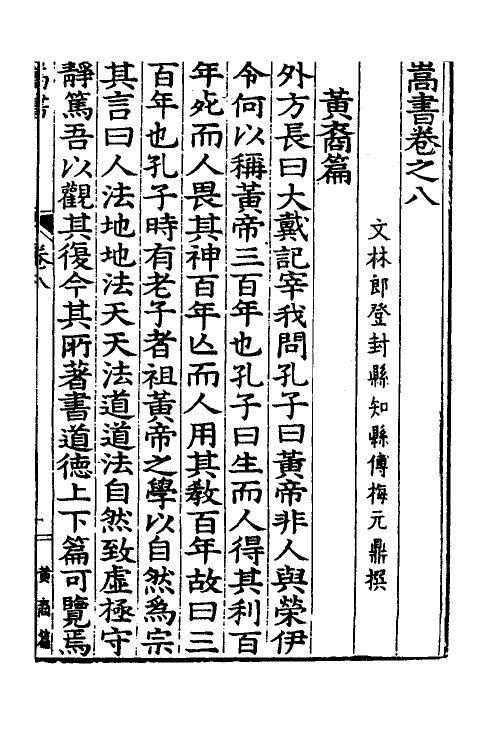 嵩書卷之八
文林郎登封縣知縣傅梅元鼎撰
黃裔篇
外方長曰大戴記宰我問孔子曰黃帝非人與榮伊
令何以稱黃帝三百年也孔子曰生而人得其利百
年死而人畏其神百年亾而人用其敎百年故曰三
百年也孔子時有老子者祖黃帝之學以自然為宗
其言曰人法地地法天天法道道法自然致虛極守
靜篤吾以觀其復今其所著書道德上下篇可覽焉
嵩書
卷八
一
黃裔篇